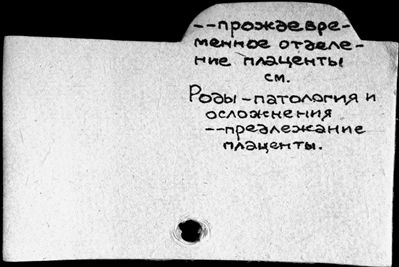 --прождевре-
менное отделе-
ние плаценты
см.
Роды-патология и
осложнения
--предлежание
плаценты.